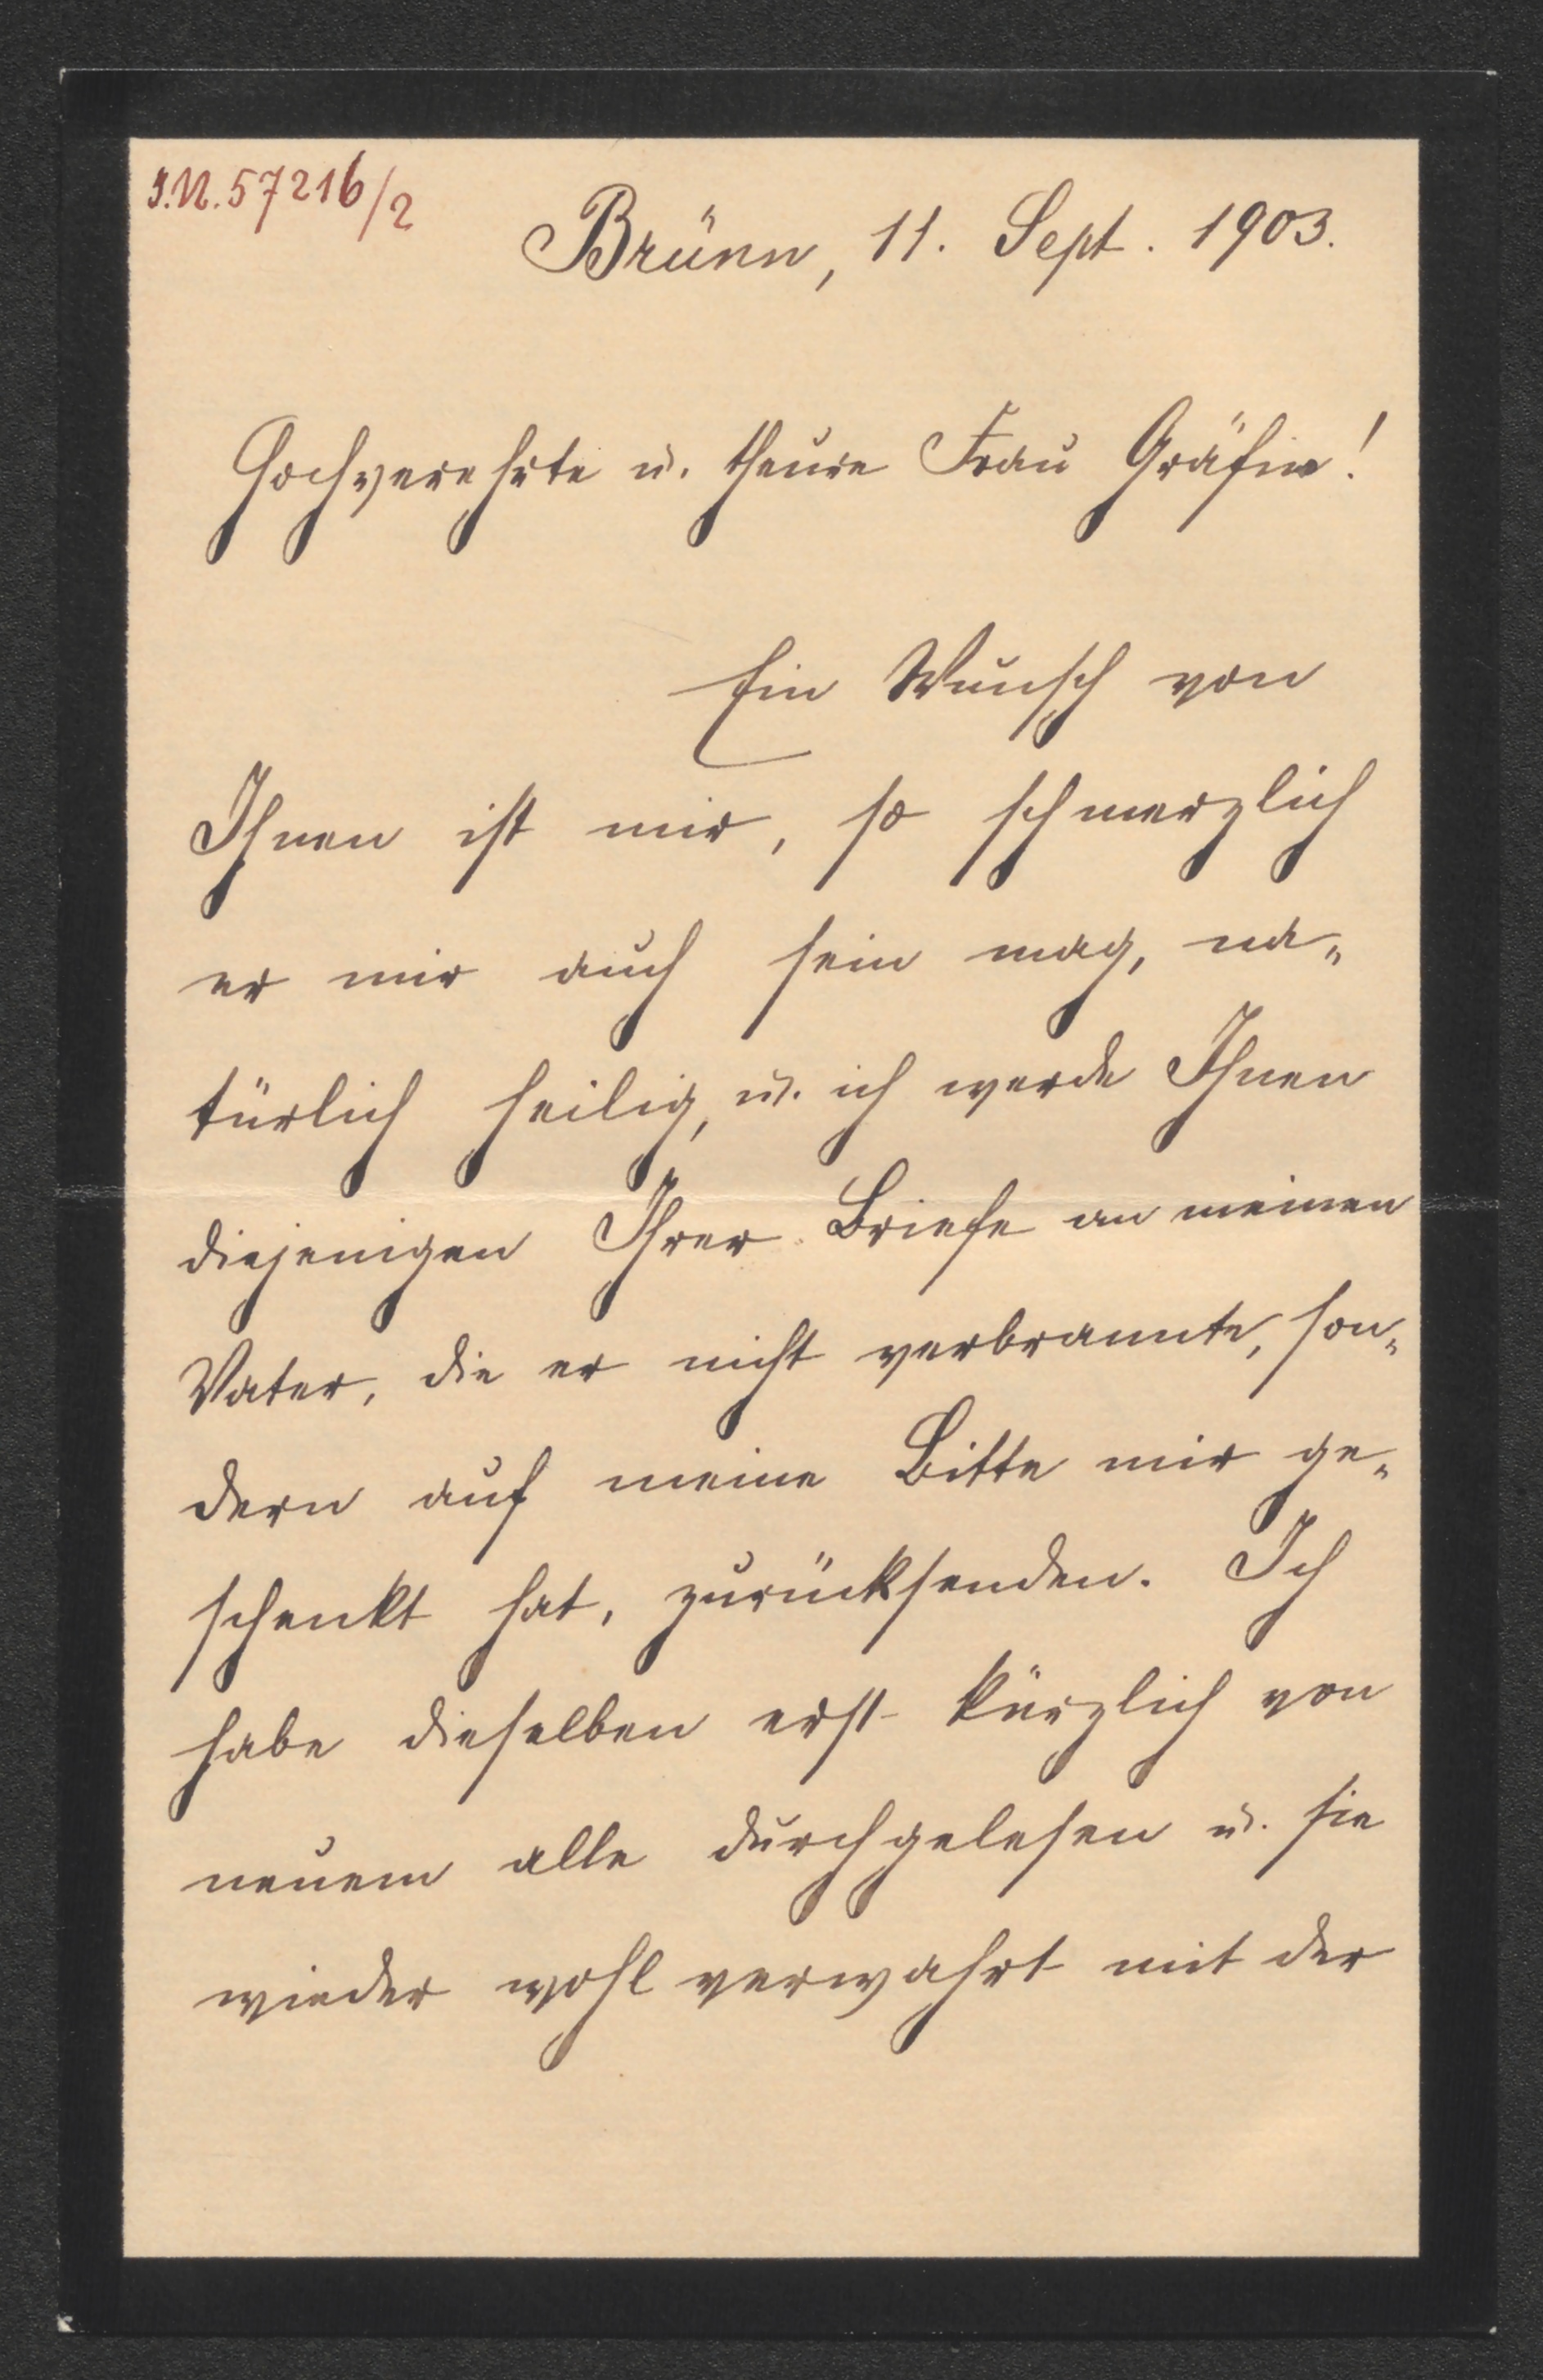 I.N. 57216/2
Brünn, 11. Sept. 1903.
Hochverehrte u. theure Frau Gräfin!
Ein Wunsch von
Ihnen ist mir, so schmerzlich
er mir auch sein mag, na-
türlich heilig, u. ich werde Ihnen
diejenigen Ihrer Briefe an meinen
Vater, die er nicht verbrannte, son-
dern auf meine Bitte mir ge-
schenkt hat, zurücksenden. Ich
habe dieselben erst kürzlich von
neuem alle durchgelesen u. sie
wieder wohl verwahrt mit der